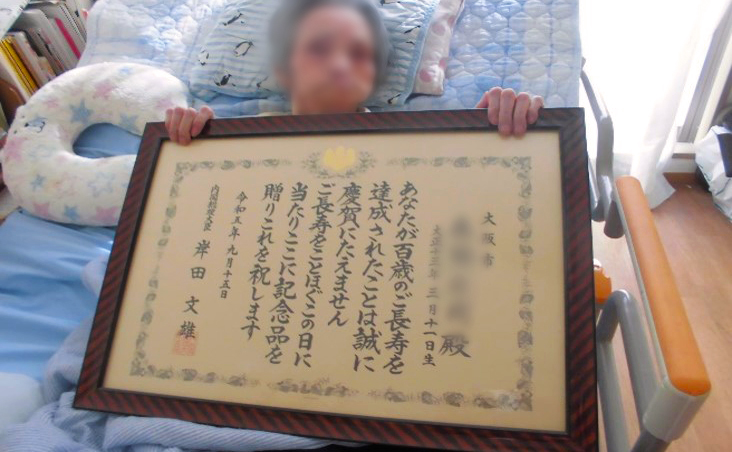 大阪府
殿
大正十三年 三月十一日生
あなたが百歳のご長寿を
達成されたことは誠に
慶賀にたえません
ご長寿をことほぐこの日に
当たりここに記念品を
贈りこれを祝します
令和五年九月十五日
内閣総理大臣 岸田文雄